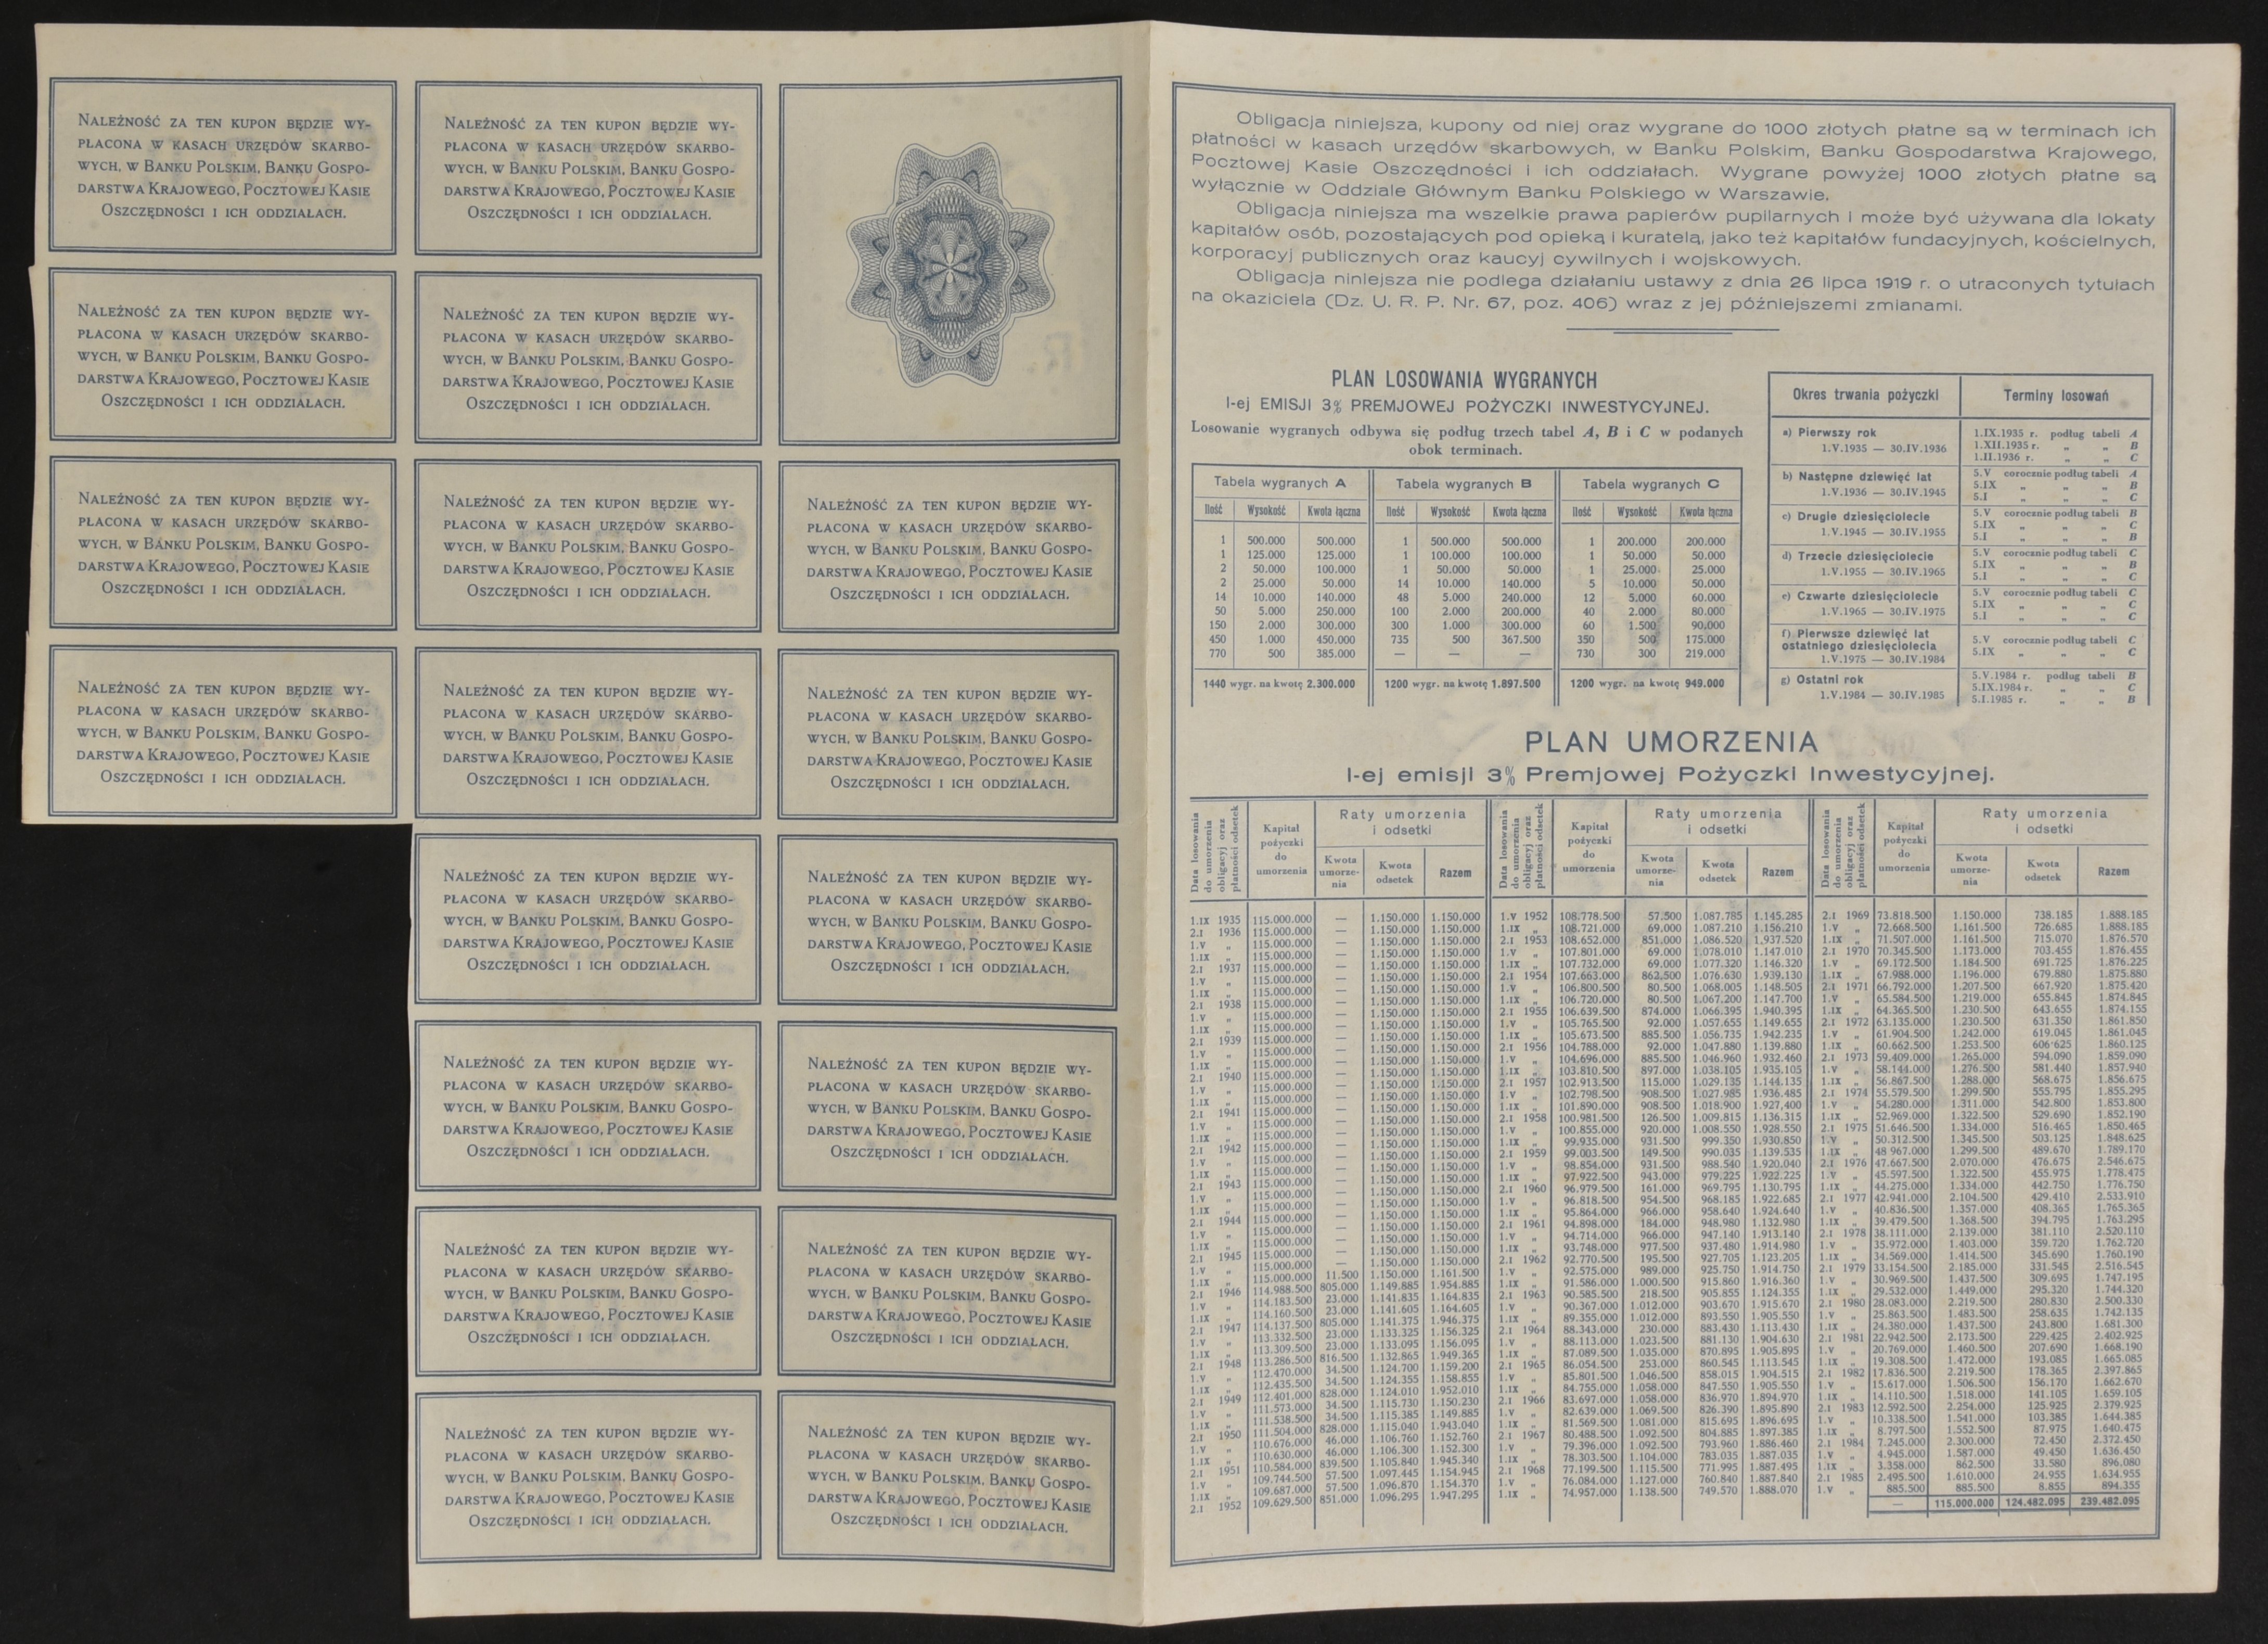 NALEŻNOŚĆ ZA TEN KUPON BĘDZIE WY-
PŁACONA W KASACH URZĘDÓW SKARBO-
WYCH, W BANKU POLSKIM, BANKU GOSPO-
DARSTWA KRAJOWEGO, POCZTOWEJ KASIE
OSZCZĘDNOŚCI I ICH ODDZIAŁACH.
NALEŻNOŚĆ ZA TEN KUPON BĘDZIE WY-
PŁACONA W KASACH URZĘDÓW SKARBO-
WYCH, W BANKU POLSKIM, BANKU GOSPO-
DARSTWA KRAJOWEGO, POCZTOWEJ KASIE
OSZCZĘDNOŚCI I ICH ODDZIAŁACH.
NALEŻNOŚĆ ZA TEN KUPON BĘDZIE WY-
PŁACONA W KASACH URZĘDÓW SKARBO-
WYCH, W BANKU POLSKIM, BANKU GOSPO-
DARSTWA KRAJOWEGO, POCZTOWEJ KASIE
OSZCZĘDNOŚCI I ICH ODDZIAŁACH.
NALEŻNOŚĆ ZA TEN KUPON BĘDZIE WY-
PŁACONA W KASACH URZĘDÓW SKARBO-
WYCH, W BANKU POLSKIM, BANKU GOSPO-
DARSTWA KRAJOWEGO, POCZTOWEJ KASIE
OSZCZĘDNOŚCI I ICH ODDZIAŁACH.
NALEŻNOŚĆ ZA TEN KUPON BĘDZIE WY-
PŁACONA W KASACH URZĘDÓW SKARBO-
WYCH, W BANKU POLSKIM, BANKU GOSPO-
DARSTWA KRAJOWEGO, POCZTOWEJ KASIE
OSZCZĘDNOŚCI I ICH ODDZIAŁACH.
NALEŻNOŚĆ ZA TEN KUPON BĘDZIE WY-
PŁACONA W KASACH URZĘDÓW SKARBO-
WYCH, W BANKU POLSKIM, BANKU GOSPO-
DARSTWA KRAJOWEGO, POCZTOWEJ KASIE
OSZCZĘDNOŚCI I ICH ODDZIAŁACH.
NALEŻNOŚĆ ZA TEN KUPON BĘDZIE WY-
PŁACONA W KASACH URZĘDÓW SKARBO-
WYCH, W BANKU POLSKIM, BANKU GOSPO-
DARSTWA KRAJOWEGO, POCZTOWEJ KASIE
OSZCZĘDNOŚCI I ICH ODDZIAŁACH.
NALEŻNOŚĆ ZA TEN KUPON BĘDZIE WY-
PŁACONA W KASACH URZĘDÓW SKARBO-
WYCH, W BANKU POLSKIM, BANKU GOSPO-
DARSTWA KRAJOWEGO, POCZTOWEJ KASIE
OSZCZĘDNOŚCI I ICH ODDZIAŁACH.
NALEŻNOŚĆ ZA TEN KUPON BĘDZIE WY-
PŁACONA W KASACH URZĘDÓW SKARBO-
WYCH, W BANKU POLSKIM, BANKU GOSPO-
DARSTWA KRAJOWEGO, POCZTOWEJ KASIE
OSZCZĘDNOŚCI I ICH ODDZIAŁACH.
NALEŻNOŚĆ ZA TEN KUPON BĘDZIE WY-
PŁACONA W KASACH URZĘDÓW SKARBO-
WYCH, W BANKU POLSKIM, BANKU GOSPO-
DARSTWA KRAJOWEGO, POCZTOWEJ KASIE
OSZCZĘDNOŚCI I ICH ODDZIAŁACH.
NALEŻNOŚĆ ZA TEN KUPON BĘDZIE WY-
PŁACONA W KASACH URZĘDÓW SKARBO-
WYCH, W BANKU POLSKIM, BANKU GOSPO-
DARSTWA KRAJOWEGO, POCZTOWEJ KASIE
OSZCZĘDNOŚCI I ICH ODDZIAŁACH.
NALEŻNOŚĆ ZA TEN KUPON BĘDZIE WY-
PŁACONA W KASACH URZĘDÓW SKARBO-
WYCH, W BANKU POLSKIM, BANKU GOSPO-
DARSTWA KRAJOWEGO, POCZTOWEJ KASIE
OSZCZĘDNOŚCI I ICH ODDZIAŁACH.
NALEŻNOŚĆ ZA TEN KUPON BĘDZIE WY-
PŁACONA W KASACH URZĘDÓW SKARBO-
WYCH, W BANKU POLSKIM, BANKU GOSPO-
DARSTWA KRAJOWEGO, POCZTOWEJ KASIE
OSZCZĘDNOŚCI I ICH ODDZIAŁACH.
NALEŻNOŚĆ ZA TEN KUPON BĘDZIE WY-
PŁACONA W KASACH URZĘDÓW SKARBO-
WYCH, W BANKU POLSKIM, BANKU GOSPO-
DARSTWA KRAJOWEGO, POCZTOWEJ KASIE
OSZCZĘDNOŚCI I ICH ODDZIAŁACH.
NALEŻNOŚĆ ZA TEN KUPON BĘDZIE WY-
PŁACONA W KASACH URZĘDÓW SKARBO-
WYCH, W BANKU POLSKIM, BANKU GOSPO-
DARSTWA KRAJOWEGO, POCZTOWEJ KASIE
OSZCZĘDNOŚCI I ICH ODDZIAŁACH.
NALEŻNOŚĆ ZA TEN KUPON BĘDZIE WY-
PŁACONA W KASACH URZĘDÓW SKARBO-
WYCH, W BANKU POLSKIM, BANKU GOSPO-
DARSTWA KRAJOWEGO, POCZTOWEJ KASIE
OSZCZĘDNOŚCI I ICH ODDZIAŁACH.
NALEŻNOŚĆ ZA TEN KUPON BĘDZIE WY-
PŁACONA W KASACH URZĘDÓW SKARBO-
WYCH, W BANKU POLSKIM, BANKU GOSPO-
DARSTWA KRAJOWEGO, POCZTOWEJ KASIE
OSZCZĘDNOŚCI I ICH ODDZIAŁACH.
NALEŻNOŚĆ ZA TEN KUPON BĘDZIE WY-
PŁACONA W KASACH URZĘDÓW SKARBO-
WYCH, W BANKU POLSKIM, BANKU GOSPO-
DARSTWA KRAJOWEGO, POCZTOWEJ KASIE
OSZCZĘDNOŚCI I ICH ODDZIAŁACH.
Obligacja niniejsza, kupony od niej oraz wygrane do 1000 złotych płatne są w terminach ich
płatności w kasach urzędów skarbowych, w Banku Polskim, Banku Gospodarstwa Krajowego,
Pocztowej Kasie Oszczędności i ich oddziałach. Wygrane powyżej 1000 złotych płatne są
wyłącznie w Oddziale Głównym Banku Polskiego w Warszawie.
Obligacja niniejsza ma wszelkie prawa papierów pupilarnych i może być używana dla lokaty
kapitałów osób, pozostających pod opieką i kuratelą, jako też kapitałów fundacyjnych, kościelnych,
korporacyj publicznych oraz kaucyj cywilnych i wojskowych.
Obligacja niniejsza nie podlega działaniu ustawy z dnia 26 lipca 1919 r. o utraconych tytułach
na okaziciela (Dz. U. R. P. Nr. 67, poz. 406) wraz z jej późniejszemi zmianami.
PLAN LOSOWANIA WYGRANYCH
I-ej EMISJI 3% PREMJOWEJ POŻYCZKI INWESTYCYJNEJ.
Losowanie wygranych odbywa się podług trzech tabel A, B i C w podanych
obok terminach.
Tabela wygranych A Tabela wygranych B Tabela wygranych C
Ilość Wysokość Kwota łączna Ilość Wysokość Kwota łączna Ilość Wysokość Kwota łączna
1 500.000 500.000 1 500.000 500.000 1 200.000 200.000
1 125.000 125.000 1 100.000 100.000 1 50.000 50.000
2 50.000 100.000 1 50.000 50.000 1 25.000 25.000
2 25.000 50.000 14 10.000 140.000 5 10.000 50.000
14 10.000 140.000 48 5.000 240.000 12 5.000 60.000
50 5.000 250.000 100 2.000 200.000 40 2.000 80.000
150 2.000 300.000 300 1.000 300.000 60 1.500 90.000
450 1.000 450.000 735 500 367.500 350 500 175.000
770 500 385.000 — — — 730 300 219.000
1440 wygr. na kwotę 2.300.000 1200 wygr. na kwotę 1.897.500 1200 wygr. na kwotę 949.000
Okres trwania pożyczki Terminy losowań
a) Pierwszy rok 1.IX.1935 r. podług tabeli A
1.V.1935 — 30.IV.1936 1.XII.1935 r. „ „ B
1.II.1936 r. „ „ C
b) Następne dziewięć lat 5.V corocznie podług tabeli A
1.V.1936 — 30.IV.1945 5.IX „ „ „ B
5.I „ „ „ C
c) Drugie dziesięciolecie 5.V corocznie podług tabeli B
1.V.1945 — 30.IV.1955 5.IX „ „ „ C
5.I „ „ „ B
d) Trzecie dziesięciolecie 5.V corocznie podług tabeli C
1.V.1955 — 30.IV.1965 5.IX „ „ „ B
5.I „ „ „ C
e) Czwarte dziesięciolecie 5.V corocznie podług tabeli C
1.V.1965 — 30.IV.1975 5.IX „ „ „ C
5.I „ „ „ C
f) Pierwsze dziewięć lat
ostatniego dziesięciolecia 5.V corocznie podług tabeli C
1.V.1975 — 30.IV.1984 5.IX „ „ „ C
g) Ostatni rok 5.V.1984 r. podług tabeli B
1.V.1984 — 30.IV.1985 5.IX.1984 r. „ „ C
5.I.1985 r. „ „ B
PLAN UMORZENIA
I-ej emisji 3% Premjowej Pożyczki Inwestycyjnej.
Data losowania
do umorzenia
obligacyj oraz
płatności odsetek
Kapitał
pożyczki
do
umorzenia
Raty umorzenia
i odsetki
Kwota
umorze-
nia
Kwota
odsetek
Razem
1.IX 1935 115.000.000 — 1.150.000 1.150.000
2.I 1936 115.000.000 — 1.150.000 1.150.000
1.V „ 115.000.000 — 1.150.000 1.150.000
1.IX „ 115.000.000 — 1.150.000 1.150.000
2.I 1937 115.000.000 — 1.150.000 1.150.000
1.V „ 115.000.000 — 1.150.000 1.150.000
1.IX „ 115.000.000 — 1.150.000 1.150.000
2.I 1938 115.000.000 — 1.150.000 1.150.000
1.V „ 115.000.000 — 1.150.000 1.150.000
1.IX „ 115.000.000 — 1.150.000 1.150.000
2.I 1939 115.000.000 — 1.150.000 1.150.000
1.V „ 115.000.000 — 1.150.000 1.150.000
1.IX „ 115.000.000 — 1.150.000 1.150.000
2.I 1940 115.000.000 — 1.150.000 1.150.000
1.V „ 115.000.000 — 1.150.000 1.150.000
1.IX „ 115.000.000 — 1.150.000 1.150.000
2.I 1941 115.000.000 — 1.150.000 1.150.000
1.V „ 115.000.000 — 1.150.000 1.150.000
1.IX „ 115.000.000 — 1.150.000 1.150.000
2.I 1942 115.000.000 — 1.150.000 1.150.000
1.V „ 115.000.000 — 1.150.000 1.150.000
1.IX „ 115.000.000 — 1.150.000 1.150.000
2.I 1943 115.000.000 — 1.150.000 1.150.000
1.V „ 115.000.000 — 1.150.000 1.150.000
1.IX „ 115.000.000 — 1.150.000 1.150.000
2.I 1944 115.000.000 — 1.150.000 1.150.000
1.V „ 115.000.000 — 1.150.000 1.150.000
1.IX „ 115.000.000 — 1.150.000 1.150.000
2.I 1945 115.000.000 — 1.150.000 1.150.000
1.V „ 115.000.000 — 1.150.000 1.150.000
1.IX „ 115.000.000 11.500 1.150.000 1.161.500
2.I 1946 114.988.500 805.000 1.149.885 1.954.885
1.V „ 114.183.500 23.000 1.141.835 1.164.835
1.IX „ 114.160.500 23.000 1.141.605 1.164.605
2.I 1947 114.137.500 805.000 1.141.375 1.946.375
1.V „ 113.332.500 23.000 1.133.325 1.156.325
1.IX „ 113.309.500 23.000 1.133.095 1.156.095
2.I 1948 113.286.500 816.500 1.132.865 1.949.365
1.V „ 112.470.000 34.500 1.124.700 1.159.200
1.IX „ 112.435.500 34.500 1.124.355 1.158.855
2.I 1949 112.401.000 828.000 1.124.010 1.952.010
1.V „ 111.573.000 34.500 1.115.730 1.150.230
1.IX „ 111.538.500 34.500 1.115.385 1.149.885
2.I 1950 111.504.000 828.000 1.115.040 1.943.040
1.V „ 110.676.000 46.000 1.106.760 1.152.760
1.IX „ 110.630.000 46.000 1.106.300 1.152.300
2.I 1951 110.584.000 839.500 1.105.840 1.945.340
1.V „ 109.744.500 57.500 1.097.445 1.154.945
1.IX „ 109.687.000 57.500 1.096.870 1.154.370
2.I 1952 109.629.500 851.000 1.096.295 1.947.295
Data losowania
do umorzenia
obligacyj oraz
płatności odsetek
Kapitał
pożyczki
do
umorzenia
Raty umorzenia
i odsetki
Kwota
umorze-
nia
Kwota
odsetek
Razem
1.V 1952 108.778.500 57.500 1.087.785 1.145.285
1.IX „ 108.721.000 69.000 1.087.210 1.156.210
2.I 1953 108.652.000 851.000 1.086.520 1.937.520
1.V „ 107.801.000 69.000 1.078.010 1.147.010
1.IX „ 107.732.000 69.000 1.077.320 1.146.320
2.I 1954 107.663.000 862.500 1.076.630 1.939.130
1.V „ 106.800.500 80.500 1.068.005 1.148.505
1.IX „ 106.720.000 80.500 1.067.200 1.147.700
2.I 1955 106.639.500 874.000 1.066.395 1.940.395
1.V „ 105.765.500 92.000 1.057.655 1.149.655
1.IX „ 105.673.500 885.500 1.056.735 1.942.235
2.I 1956 104.788.000 92.000 1.047.880 1.139.880
1.V „ 104.696.000 885.500 1.046.960 1.932.460
1.IX „ 103.810.500 897.000 1.038.105 1.935.105
2.I 1957 102.913.500 115.000 1.029.135 1.144.135
1.V „ 102.798.500 908.500 1.027.985 1.936.485
1.IX „ 101.890.000 908.500 1.018.900 1.927.400
2.I 1958 100.981.500 126.500 1.009.815 1.136.315
1.V „ 100.855.000 920.000 1.008.550 1.928.550
1.IX „ 99.935.000 931.500 999.350 1.930.850
2.I 1959 99.003.500 149.500 990.035 1.139.535
1.V „ 98.854.000 931.500 988.540 1.920.040
1.IX „ 97.922.500 943.000 979.225 1.922.225
2.I 1960 96.979.500 161.000 969.795 1.130.795
1.V „ 96.818.500 954.500 968.185 1.922.685
1.IX „ 95.864.000 966.000 958.640 1.924.640
2.I 1961 94.898.000 184.000 948.980 1.132.980
1.V „ 94.714.000 966.000 947.140 1.913.140
1.IX „ 93.748.000 977.500 937.480 1.914.980
2.I 1962 92.770.500 195.500 927.705 1.123.205
1.V „ 92.575.000 989.000 925.750 1.914.750
1.IX „ 91.586.000 1.000.500 915.860 1.916.360
2.I 1963 90.585.500 218.500 905.855 1.124.355
1.V „ 90.367.000 1.012.000 903.670 1.915.670
1.IX „ 89.355.000 1.012.000 893.550 1.905.550
2.I 1964 88.343.000 230.000 883.430 1.113.430
1.V „ 88.113.000 1.023.500 881.130 1.904.630
1.IX „ 87.089.500 1.035.000 870.895 1.905.895
2.I 1965 86.054.500 253.000 860.545 1.113.545
1.V „ 85.801.500 1.046.500 858.015 1.904.515
1.IX „ 84.755.000 1.058.000 847.550 1.905.550
2.I 1966 83.697.000 1.058.000 836.970 1.894.970
1.V „ 82.639.000 1.069.500 826.390 1.895.890
1.IX „ 81.569.500 1.081.000 815.695 1.896.695
2.I 1967 80.488.500 1.092.500 804.885 1.897.385
1.V „ 79.396.000 1.092.500 793.960 1.886.460
1.IX „ 78.303.500 1.104.000 783.035 1.887.035
2.I 1968 77.199.500 1.115.500 771.995 1.887.495
1.V „ 76.084.000 1.127.000 760.840 1.887.840
1.IX „ 74.957.000 1.138.500 749.570 1.888.070
Data losowania
do umorzenia
obligacyj oraz
płatności odsetek
Kapitał
pożyczki
do
umorzenia
Raty umorzenia
i odsetki
Kwota
umorze-
nia
Kwota
odsetek
Razem
2.I 1969 73.818.500 1.150.000 738.185 1.888.185
1.V „ 72.668.500 1.161.500 726.685 1.888.185
1.IX „ 71.507.000 1.161.500 715.070 1.876.570
2.I 1970 70.345.500 1.173.000 703.455 1.876.455
1.V „ 69.172.500 1.184.500 691.725 1.876.225
1.IX „ 67.988.000 1.196.000 679.880 1.875.880
2.I 1971 66.792.000 1.207.500 667.920 1.875.420
1.V „ 65.584.500 1.219.000 655.845 1.874.845
1.IX „ 64.365.500 1.230.500 643.655 1.874.155
2.I 1972 63.135.000 1.230.500 631.350 1.861.850
1.V „ 61.904.500 1.242.000 619.045 1.861.045
1.IX „ 60.662.500 1.253.500 606·625 1.860.125
2.I 1973 59.409.000 1.265.000 594.090 1.859.090
1.V „ 58.144.000 1.276.500 581.440 1.857.940
1.IX „ 56.867.500 1.288.000 568.675 1.856.675
2.I 1974 55.579.500 1.299.500 555.795 1.855.295
1.V „ 54.280.000 1.311.000 542.800 1.853.800
1.IX „ 52.969.000 1.322.500 529.690 1.852.190
2.I 1975 51.646.500 1.334.000 516.465 1.850.465
1.V „ 50.312.500 1.345.500 503.125 1.848.625
1.IX „ 48 967.000 1.299.500 489.670 1.789.170
2.I 1976 47.667.500 2.070.000 476.675 2.546.675
1.V „ 45.597.500 1.322.500 455.975 1.778.475
1.IX „ 44.275.000 1.334.000 442.750 1.776.750
2.I 1977 42.941.000 2.104.500 429.410 2.533.910
1.V „ 40.836.500 1.357.000 408.365 1.765.365
1.IX „ 39.479.500 1.368.500 394.795 1.763.295
2.I 1978 38.111.000 2.139.000 381.110 2.520.110
1.V „ 35.972.000 1.403.000 359.720 1.762.720
1.IX „ 34.569.000 1.414.500 345.690 1.760.190
2.I 1979 33.154.500 2.185.000 331.545 2.516.545
1.V „ 30.969.500 1.437.500 309.695 1.747.195
1.IX „ 29.532.000 1.449.000 295.320 1.744.320
2.I 1980 28.083.000 2.219.500 280.830 2.500.330
1.V „ 25.863.500 1.483.500 258.635 1.742.135
1.IX „ 24.380.000 1.437.500 243.800 1.681.300
2.I 1981 22.942.500 2.173.500 229.425 2.402.925
1.V „ 20.769.000 1.460.500 207.690 1.668.190
1.IX „ 19.308.500 1.472.000 193.085 1.665.085
2.I 1982 17.836.500 2.219.500 178.365 2.397.865
1.V „ 15.617.000 1.506.500 156.170 1.662.670
1.IX „ 14.110.500 1.518.000 141.105 1.659.105
2.I 1983 12.592.500 2.254.000 125.925 2.379.925
1.V „ 10.338.500 1.541.000 103.385 1.644.385
1.IX „ 8.797.500 1.552.500 87.975 1.640.475
2.I 1984 7.245.000 2.300.000 72.450 2.372.450
1.V „ 4.945.000 1.587.000 49.450 1.636.450
1.IX „ 3.358.000 862.500 33.580 896.080
2.I 1985 2.495.500 1.610.000 24.955 1.634.955
1.V „ 885.500 885.500 8.855 894.355
— 115.000.000 124.482.095 239.482.095